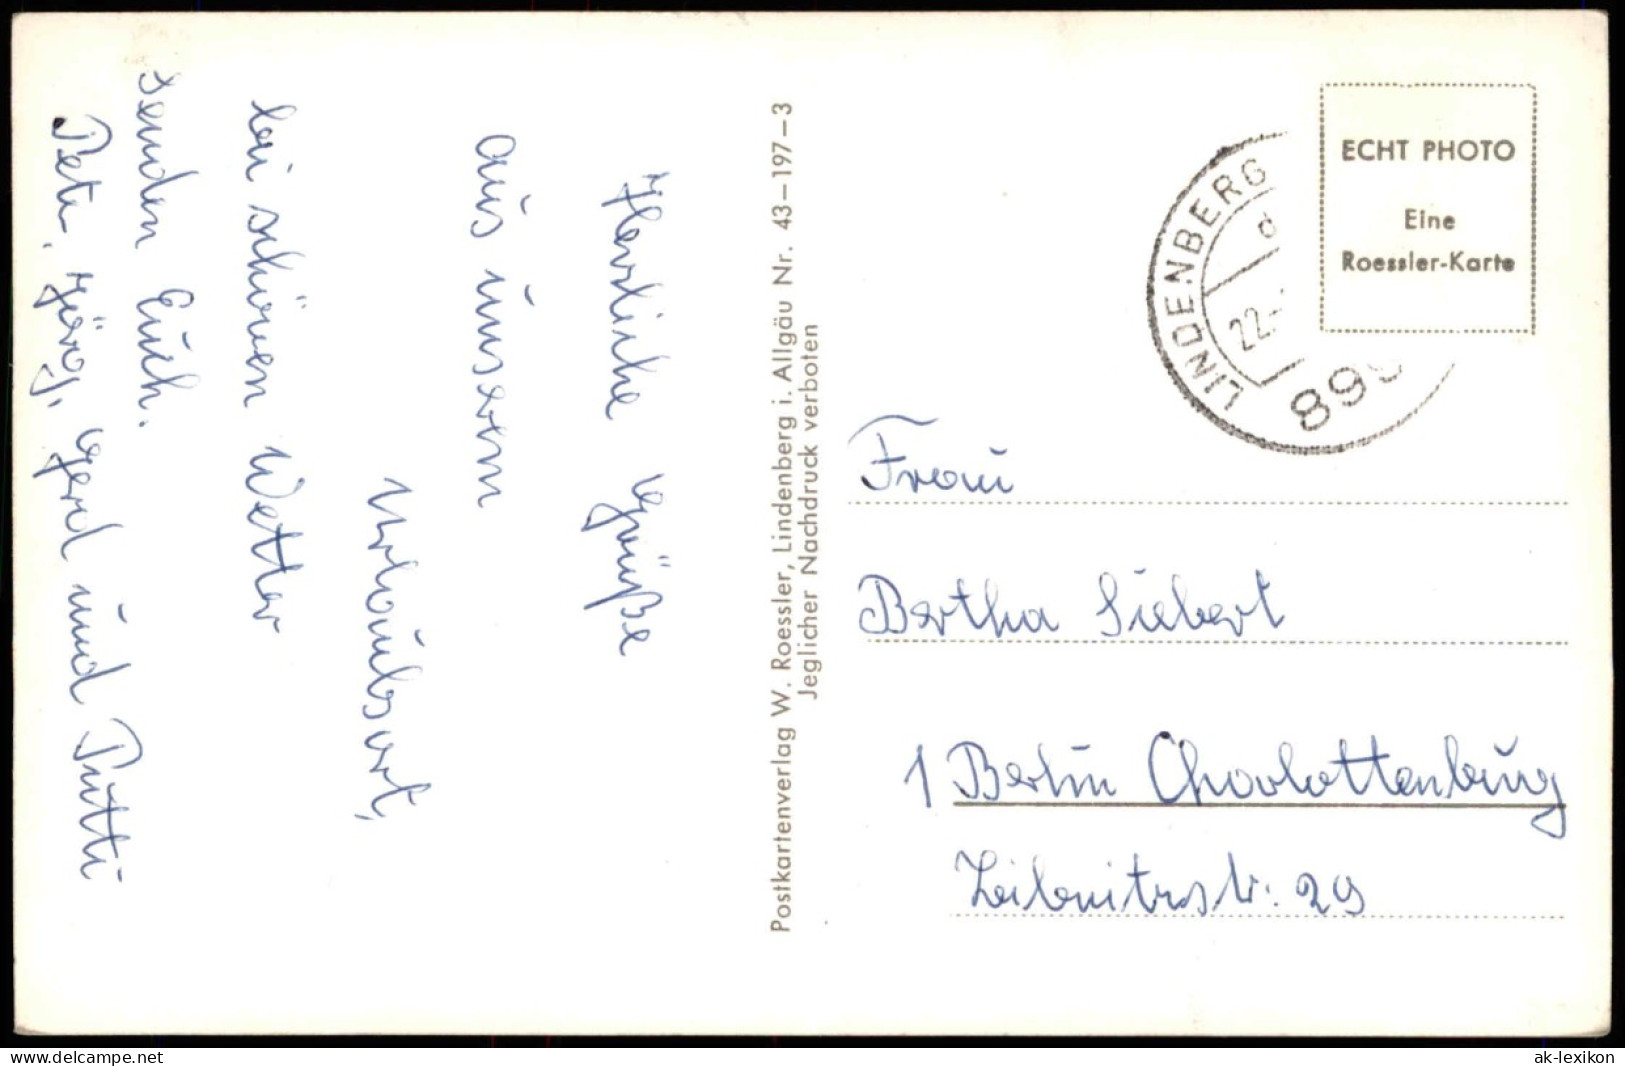 Herzliche Grüße
aus unserm
Urlaubsort,
bei schönen Wetter
senden Euch.
Pete, Jörg, Gerd und Putti
Postkartenverlag W. Roessler, Lindenberg i. Allgäu Nr. 43-197-3
Jeglicher Nachdruck verboten
ECHT PHOTO
Eine
Roessler-Karte
LINDENBERG
22.
899
Frau
Bertha Siebert
1 Berlin Charlottenburg
Leibnitzstr. 29
www.delcampe.net
ak-lexikon